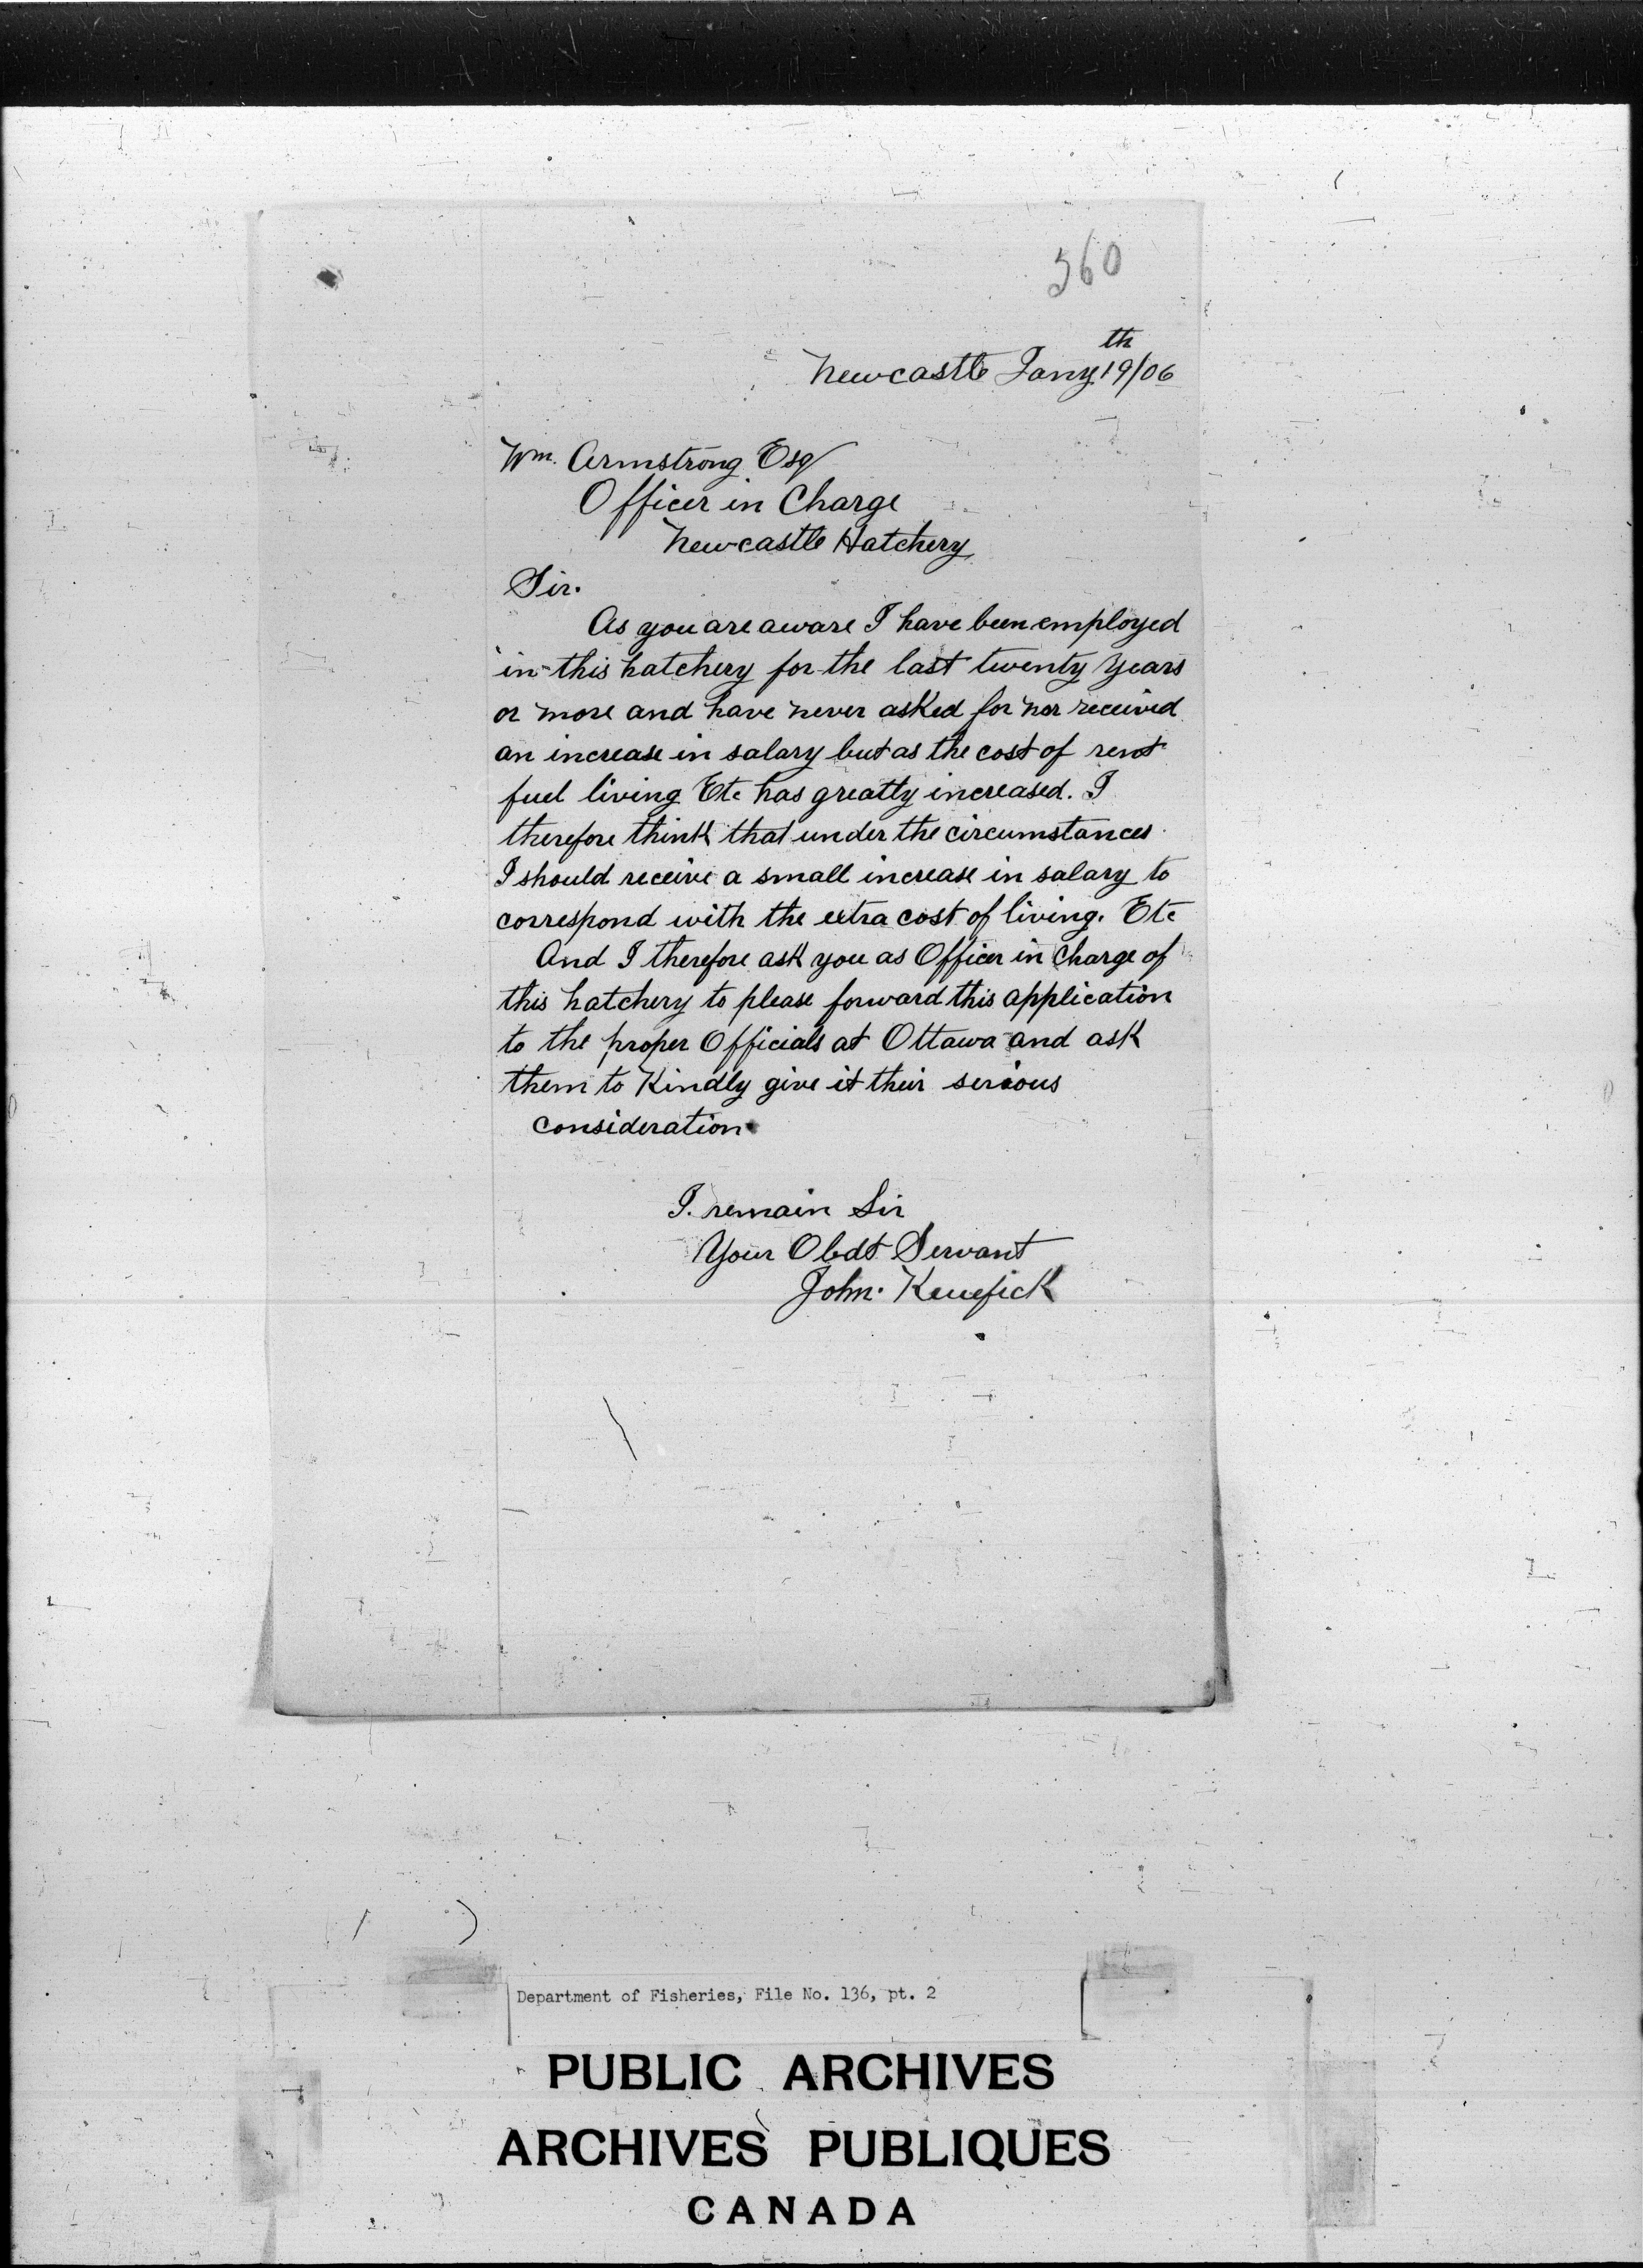 360
Newcastle Jany 19th/06
Wm. Armstrong Esq
Officer in Charge
Newcastle Hatchery
Sir.
As you are aware I have been employed
in this hatchery for the last twenty years
or more and have never asked for nor received
an increase in salary but as the cost of rent
fuel living Etc has greatly increased. I
therefore think that under the circumstances
I should receive a small increase in salary to
correspond with the extra cost of living. Etc
And I therefore ask you as Officer in Charge of
this hatchery to please forward this application
to the proper Officials at Ottawa and ask
them to Kindly give it their serious
consideration.
I. remain Sir
Your Obdt Servant
John. Kenefick
Department of Fisheries, File No. 136, pt. 2
PUBLIC ARCHIVES
ARCHIVES PUBLIQUES
CANADA